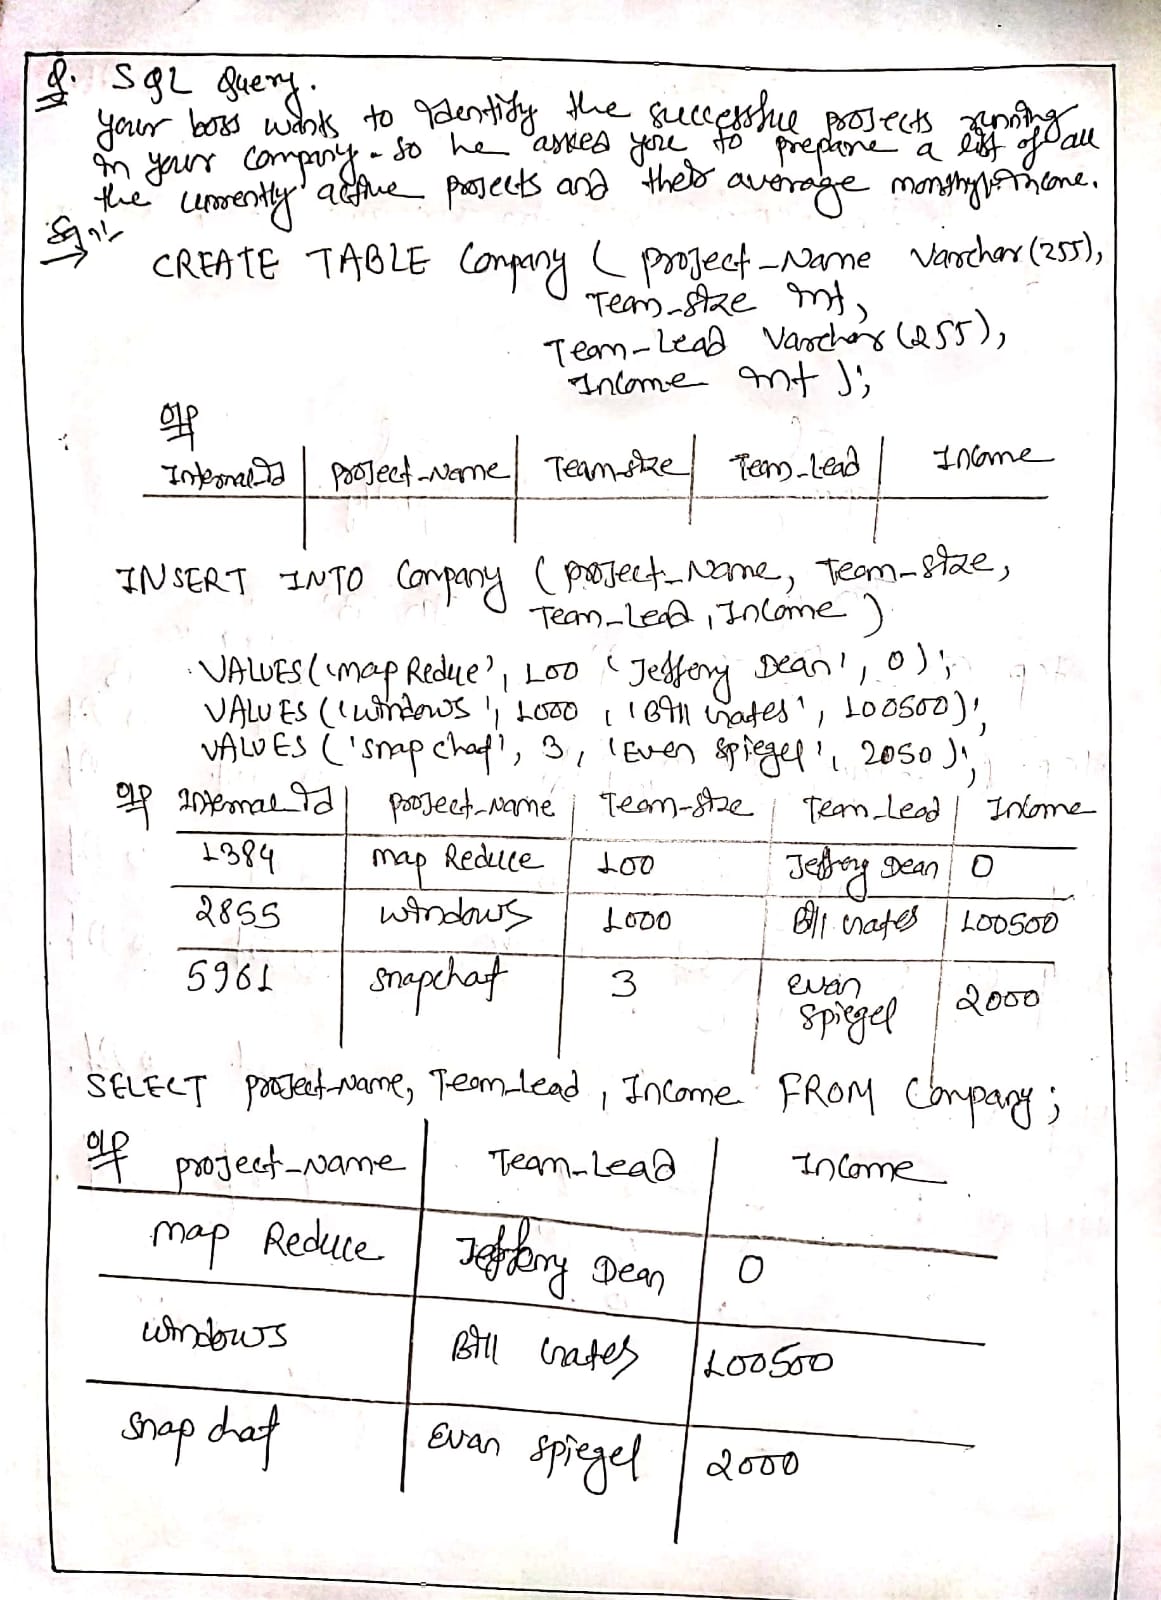 Q. SQL Query.
your boss wants to identify the successful projects running
in your company. so he asked you to prepare a list of all
the currently active projects and their average monthly income.
CREATE TABLE Company ( project_Name Varchar(255),
Team_size int,
Team_Lead Varchar(255),
Income int );
O/P
Internal Id | project_Name | Team_size | Team_Lead | Income
INSERT INTO Company ( project_Name, Team_size,
Team_Lead, Income )
VALUES('map Reduce', 100 'Jeffery Dean', 0);
VALUES ('windows', 1000, 'Bill Gates', 100500);
VALUES ('snap chat', 3, 'Even Spiegel', 2050);
O/P Internal Id | project_Name | Team_size | Team_Lead | Income
1384 | map Reduce | 100 | Jeffery Dean | 0
2855 | windows | 1000 | Bill Gates | 100500
5961 | snapchat | 3 | Evan Spiegel | 2000
SELECT project_Name, Team_Lead, Income FROM Company;
O/P project_Name | Team_Lead | Income
map Reduce | Jeffery Dean | 0
windows | Bill Gates | 100500
Snap chat | Evan Spiegel | 2000